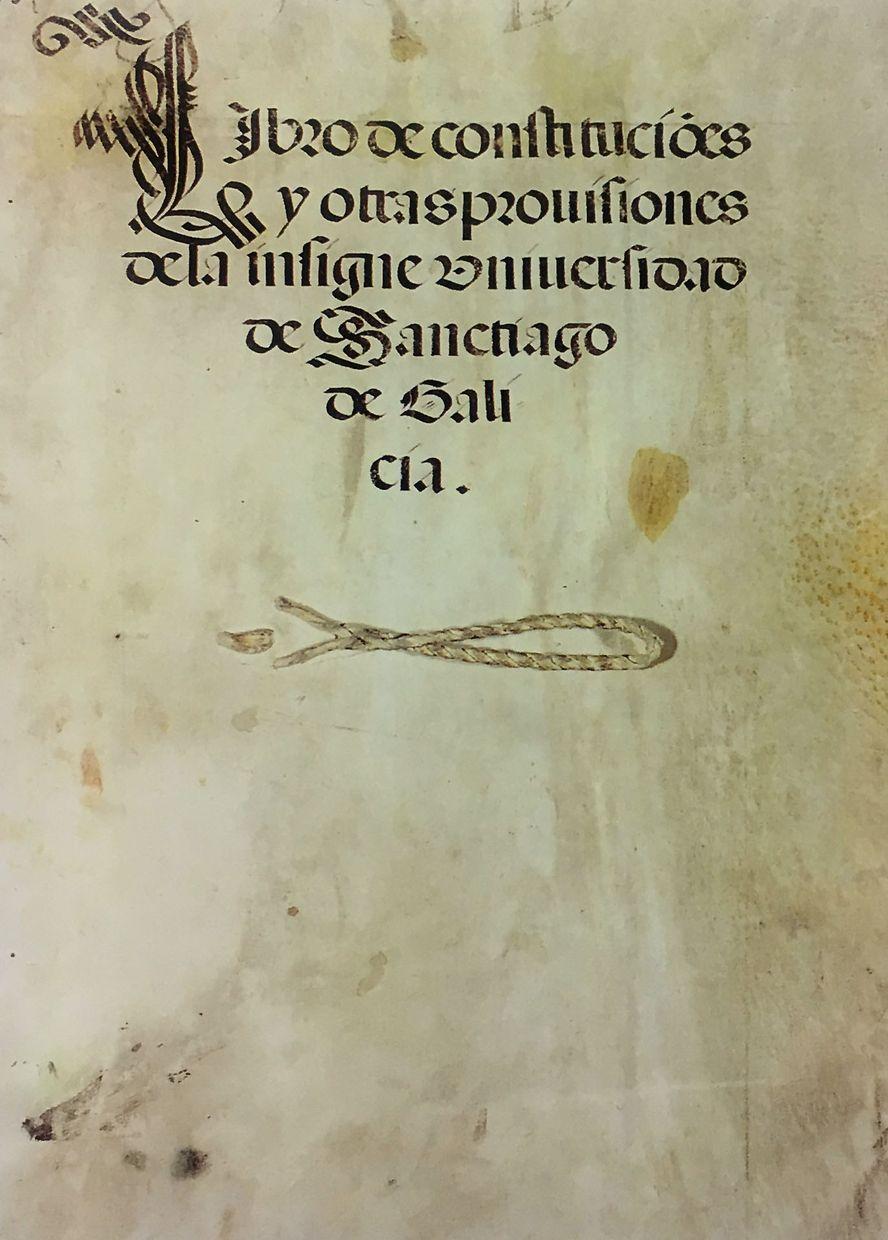 Libro de constituciões
y otras prouisiones
dela insigne Vniuersidad
de Sanctiago
de Gali
cia.